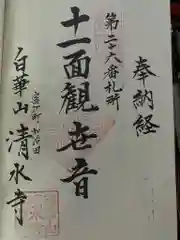 奉納経
第二十六番札所
十一面観世音
白華山 清水寺